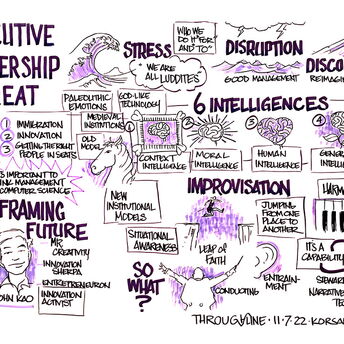 CUTIVE
ERSHIP
EAT
STRESS
WE ARE
ALL LUDDITES
WHO WE
DO IT "FOR"
AND "TO"
DISRUPTION
GOOD MANAGEMENT
DISCO
REIMAGI
PALEOLITHIC
EMOTIONS
GOD-LIKE
TECHNOLOGY
MEDIEVAL
INSTITUTIONS
OLD
MODEL
6 INTELLIGENCES
1 IMMIGRATION
2 INNOVATION
3 GETTING THE RIGHT
PEOPLE IN SEATS
IS IMPORTANT TO
MANAGEMENT
COMPUTER SCIENCE
1
CONTEXT
INTELLIGENCE
2
MORAL
INTELLIGENCE
3
HUMAN
INTELLIGENCE
4
GENER
INTELLIG
FRAMING
FUTURE
MR.
CREATIVITY
INNOVATION
SHERPA
ENTREPRENEUR
INNOVATION
ACTIVIST
OHN KAO
NEW
INSTITUTIONAL
MODELS
SITUATIONAL
AWARENESS
IMPROVISATION
LEAP OF
FAITH
JUMPING
FROM ONE
PLACE TO
ANOTHER
HARM
IT'S A
CAPABILITY
SO
WHAT?
CONDUCTING
ENTRAIN-
MENT
STEWAR
NARRATIVE
TE
THROUGHLINE · 11·7·22 · KORSA